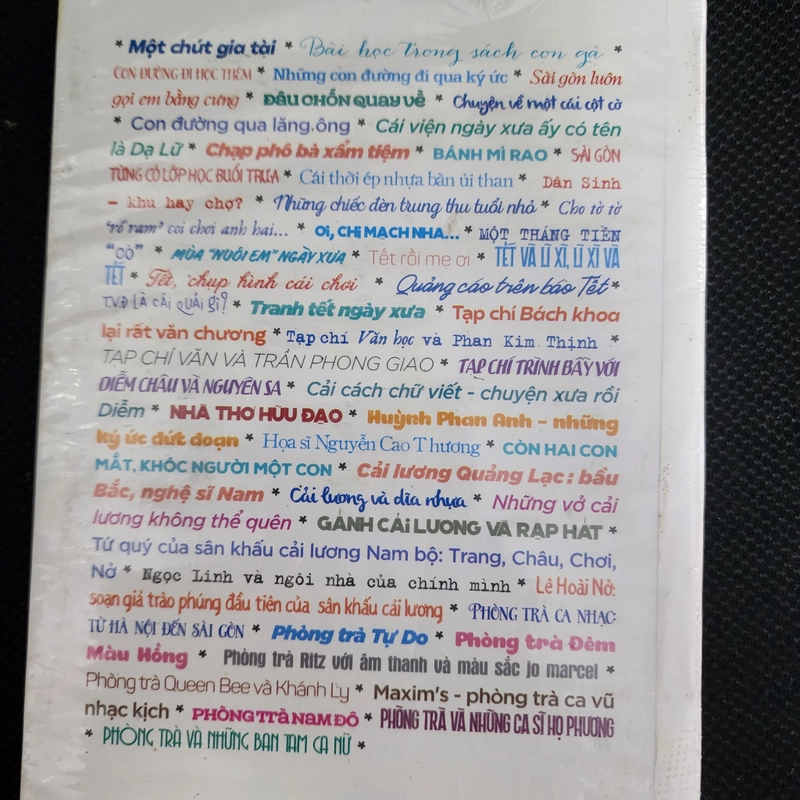 * Một chút gia tài * Bài học trong sách con gà *
CON ĐƯỜNG ĐI HỌC THÊM * Những con đường đi qua ký ức * Sài gòn luôn
gọi em bằng cưng * ĐÂU CHỐN QUAY VỀ * Chuyện về một cái cột cờ
* Con đường qua lăng ông * Cái viện ngày xưa ấy có tên
là Dạ Lữ * Chạp phô bà xẩm tiệm * BÁNH MÌ RAO * SÀI GÒN
TỪNG CÓ LỚP HỌC BUỔI TRƯA * Cái thời ép nhựa bàn ủi than * Dân Sinh
– khu hay chợ? * Những chiếc đèn trung thu tuổi nhỏ * Cho tờ tờ
"rề ram" coi chơi anh hai... * ƠI, CHỊ MẠCH NHA... * MỘT THÁNG TIỀN
"CÒ" * MÙA "NUÔI EM" NGÀY XƯA * Tết rồi mẹ ơi * TẾT VÀ LÌ XÌ, LÌ XÌ VÀ
TẾT * Tết, chụp hình cái chơi * Quảng cáo trên báo Tết *
T.V.Đ LÀ CÁI QUÁI GÌ? * Tranh tết ngày xưa * Tạp chí Bách khoa
lại rất văn chương * Tạp chí Văn học và Phan Kim Thịnh *
TẠP CHÍ VĂN VÀ TRẦN PHONG GIAO * TẠP CHÍ TRÌNH BẦY VỚI
DIỄM CHÂU VÀ NGUYÊN SA * Cải cách chữ viết - chuyện xưa rồi
Diễm * NHÀ THƠ HỮU ĐẠO * Huỳnh Phan Anh – những
ký ức đứt đoạn * Họa sĩ Nguyễn Cao Thương * CÒN HAI CON
MẮT, KHÓC NGƯỜI MỘT CON * Cải lương Quảng Lạc: bầu
Bắc, nghệ sĩ Nam * Cải lương và dĩa nhựa * Những vở cải
lương không thể quên * GÁNH CẢI LƯƠNG VÀ RẠP HÁT *
Tứ quý của sân khấu cải lương Nam bộ: Trang, Châu, Chơi,
Nở * Ngọc Linh và ngôi nhà của chính mình * Lê Hoài Nở:
soạn giả trào phúng đầu tiên của sân khấu cải lương * PHÒNG TRÀ CA NHẠC:
TỪ HÀ NỘI ĐẾN SÀI GÒN * Phòng trà Tự Do * Phòng trà Đêm
Màu Hồng * Phòng trà Ritz với âm thanh và màu sắc jo marcel *
Phòng trà Queen Bee và Khánh Ly * Maxim's - phòng trà ca vũ
nhạc kịch * PHÒNG TRÀ NAM ĐÔ * PHÒNG TRÀ VÀ NHỮNG CA SĨ HỌ PHƯƠNG
* PHÒNG TRÀ VÀ NHỮNG BAN TAM CA NỮ *